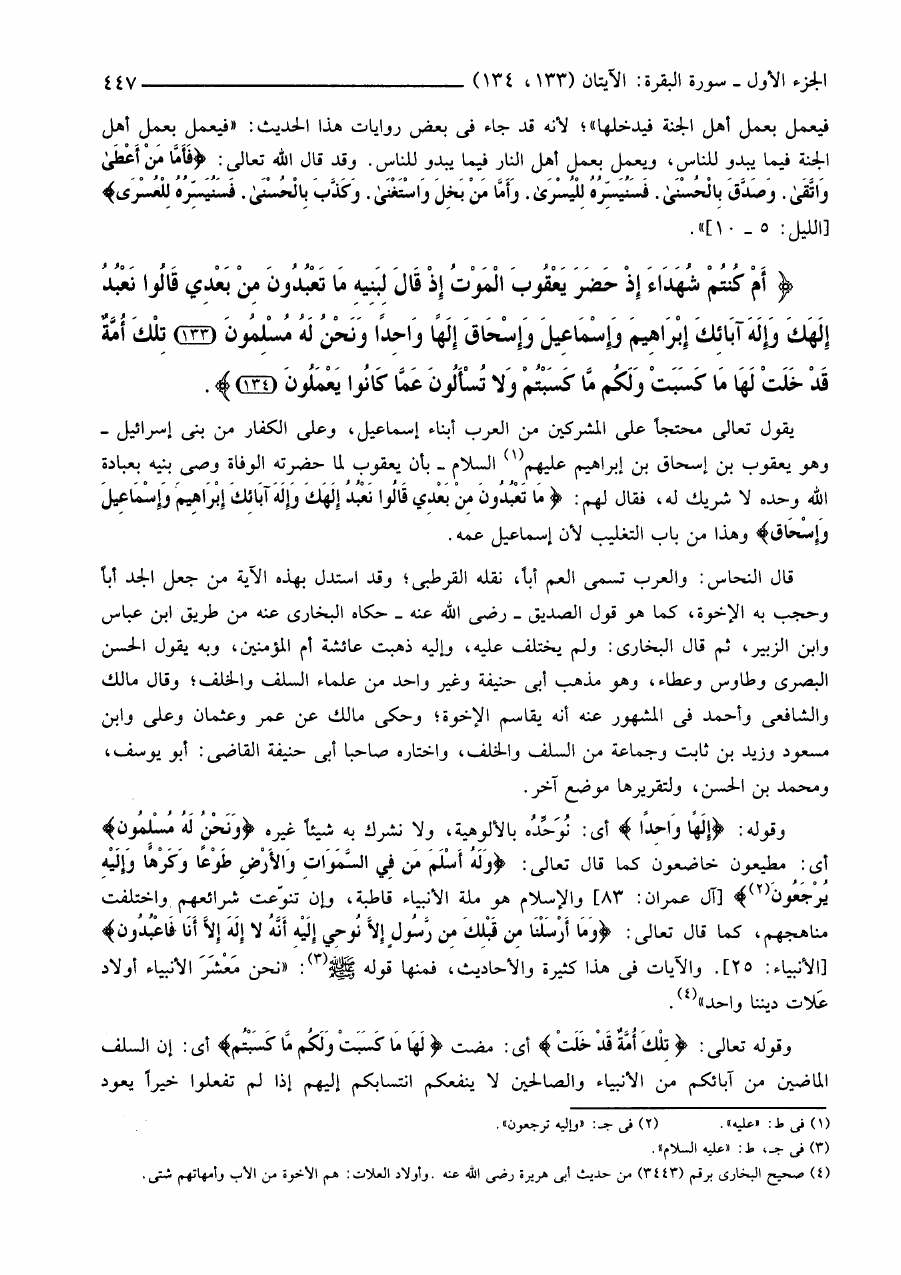 الجزء الأول ـ سورة البقرة: الآيتان (١٣٣، ١٣٤) ٤٤٧
فيعمل بعمل أهل الجنة فيدخلها»؛ لأنه قد جاء فى بعض روايات هذا الحديث: «فيعمل بعمل أهل
الجنة فيما يبدو للناس، ويعمل بعمل أهل النار فيما يبدو للناس. وقد قال الله تعالى: ﴿فَأَمَّا مَنْ أَعْطَىٰ
وَاتَّقَىٰ. وَصَدَّقَ بِالْحُسْنَىٰ. فَسَنُيَسِّرُهُ لِلْيُسْرَىٰ. وَأَمَّا مَنْ بَخِلَ وَاسْتَغْنَىٰ. وَكَذَّبَ بِالْحُسْنَىٰ. فَسَنُيَسِّرُهُ لِلْعُسْرَى﴾
[الليل: ٥ ـ ١٠]».
﴿ أَمْ كُنتُمْ شُهَدَاءَ إِذْ حَضَرَ يَعْقُوبَ الْمَوْتُ إِذْ قَالَ لِبَنِيهِ مَا تَعْبُدُونَ مِنْ بَعْدِي قَالُوا نَعْبُدُ
إِلَهَكَ وَإِلَهَ آبَائِكَ إِبْرَاهِيمَ وَإِسْمَاعِيلَ وَإِسْحَاقَ إِلَهًا وَاحِدًا وَنَحْنُ لَهُ مُسْلِمُونَ (١٣٣) تِلْكَ أُمَّةٌ
قَدْ خَلَتْ لَهَا مَا كَسَبَتْ وَلَكُم مَّا كَسَبْتُمْ وَلا تُسْأَلُونَ عَمَّا كَانُوا يَعْمَلُونَ (١٣٤) ﴾.
يقول تعالى محتجاً على المشركين من العرب أبناء إسماعيل، وعلى الكفار من بنى إسرائيل ـ
وهو يعقوب بن إسحاق بن إبراهيم عليهم(١) السلام ـ بأن يعقوب لما حضرته الوفاة وصى بنيه بعبادة
الله وحده لا شريك له، فقال لهم: ﴿ مَا تَعْبُدُونَ مِنْ بَعْدِي قَالُوا نَعْبُدُ إِلَهَكَ وَإِلَهَ آبَائِكَ إِبْرَاهِيمَ وَإِسْمَاعِيلَ
وَإِسْحَاقَ﴾ وهذا من باب التغليب لأن إسماعيل عمه.
قال النحاس: والعرب تسمى العم أباً، نقله القرطبى؛ وقد استدل بهذه الآية من جعل الجد أباً
وحجب به الإخوة، كما هو قول الصديق ـ رضى الله عنه ـ حكاه البخارى عنه من طريق ابن عباس
وابن الزبير، ثم قال البخارى: ولم يختلف عليه، وإليه ذهبت عائشة أم المؤمنين، وبه يقول الحسن
البصرى وطاوس وعطاء، وهو مذهب أبى حنيفة وغير واحد من علماء السلف والخلف؛ وقال مالك
والشافعى وأحمد فى المشهور عنه أنه يقاسم الإخوة؛ وحكى مالك عن عمر وعثمان وعلى وابن
مسعود وزيد بن ثابت وجماعة من السلف والخلف، واختاره صاحبا أبى حنيفة القاضى: أبو يوسف،
ومحمد بن الحسن، ولتقريرها موضع آخر.
وقوله: ﴿إِلَهًا وَاحِدًا ﴾ أى: نُوَحِّدُه بالألوهية، ولا نشرك به شيئاً غيره ﴿وَنَحْنُ لَهُ مُسْلِمُون﴾
أى: مطيعون خاضعون كما قال تعالى: ﴿وَلَهُ أَسْلَمَ مَن فِي السَّمَوَاتِ وَالأَرْضِ طَوْعًا وَكَرْهًا وَإِلَيْهِ
يُرْجَعُونَ(٢)﴾ [آل عمران: ٨٣] والإسلام هو ملة الأنبياء قاطبة، وإن تنوّعت شرائعهم واختلفت
مناهجهم، كما قال تعالى: ﴿وَمَا أَرْسَلْنَا مِن قَبْلِكَ مِن رَّسُولٍ إِلاَّ نُوحِي إِلَيْهِ أَنَّهُ لا إِلَهَ إِلاَّ أَنَا فَاعْبُدُون﴾
[الأنبياء: ٢٥]. والآيات فى هذا كثيرة والأحاديث، فمنها قوله ﷺ(٣): «نحن مَعْشَرَ الأنبياء أولاد
عَلات ديننا واحد»(٤).
وقوله تعالى: ﴿ تِلْكَ أُمَّةٌ قَدْ خَلَتْ ﴾ أى: مضت ﴿ لَهَا مَا كَسَبَتْ وَلَكُم مَّا كَسَبْتُم﴾ أى: إن السلف
الماضين من آبائكم من الأنبياء والصالحين لا ينفعكم انتسابكم إليهم إذا لم تفعلوا خيراً يعود
(١) فى ط: «عليه». (٢) فى جـ: «وإليه ترجعون».
(٣) فى جـ، ط: «عليه السلام».
(٤) صحيح البخارى برقم (٣٤٤٣) من حديث أبى هريرة رضى الله عنه .وأولاد العلات: هم الأخوة من الأب وأمهاتهم شتى.